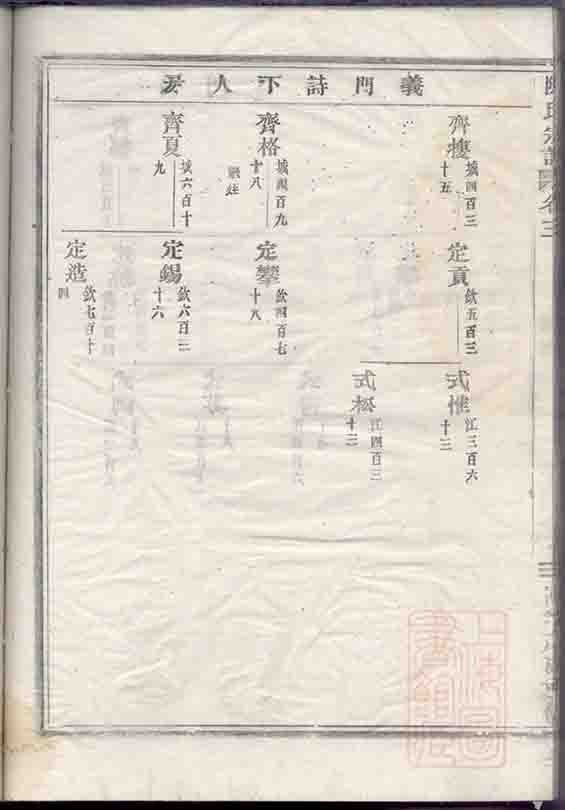 義門詩下人
齊㩳
城四百三
十五
齊格
城四百九
十八
齊夏
城六百十
九
定貢
欽五百三
定攀
欽四百七
十八
定錫
欽六百二
十六
定造
欽七百十
四
式惟
江三百六
十三
式松
江四百三
十三
上海圖
書館藏